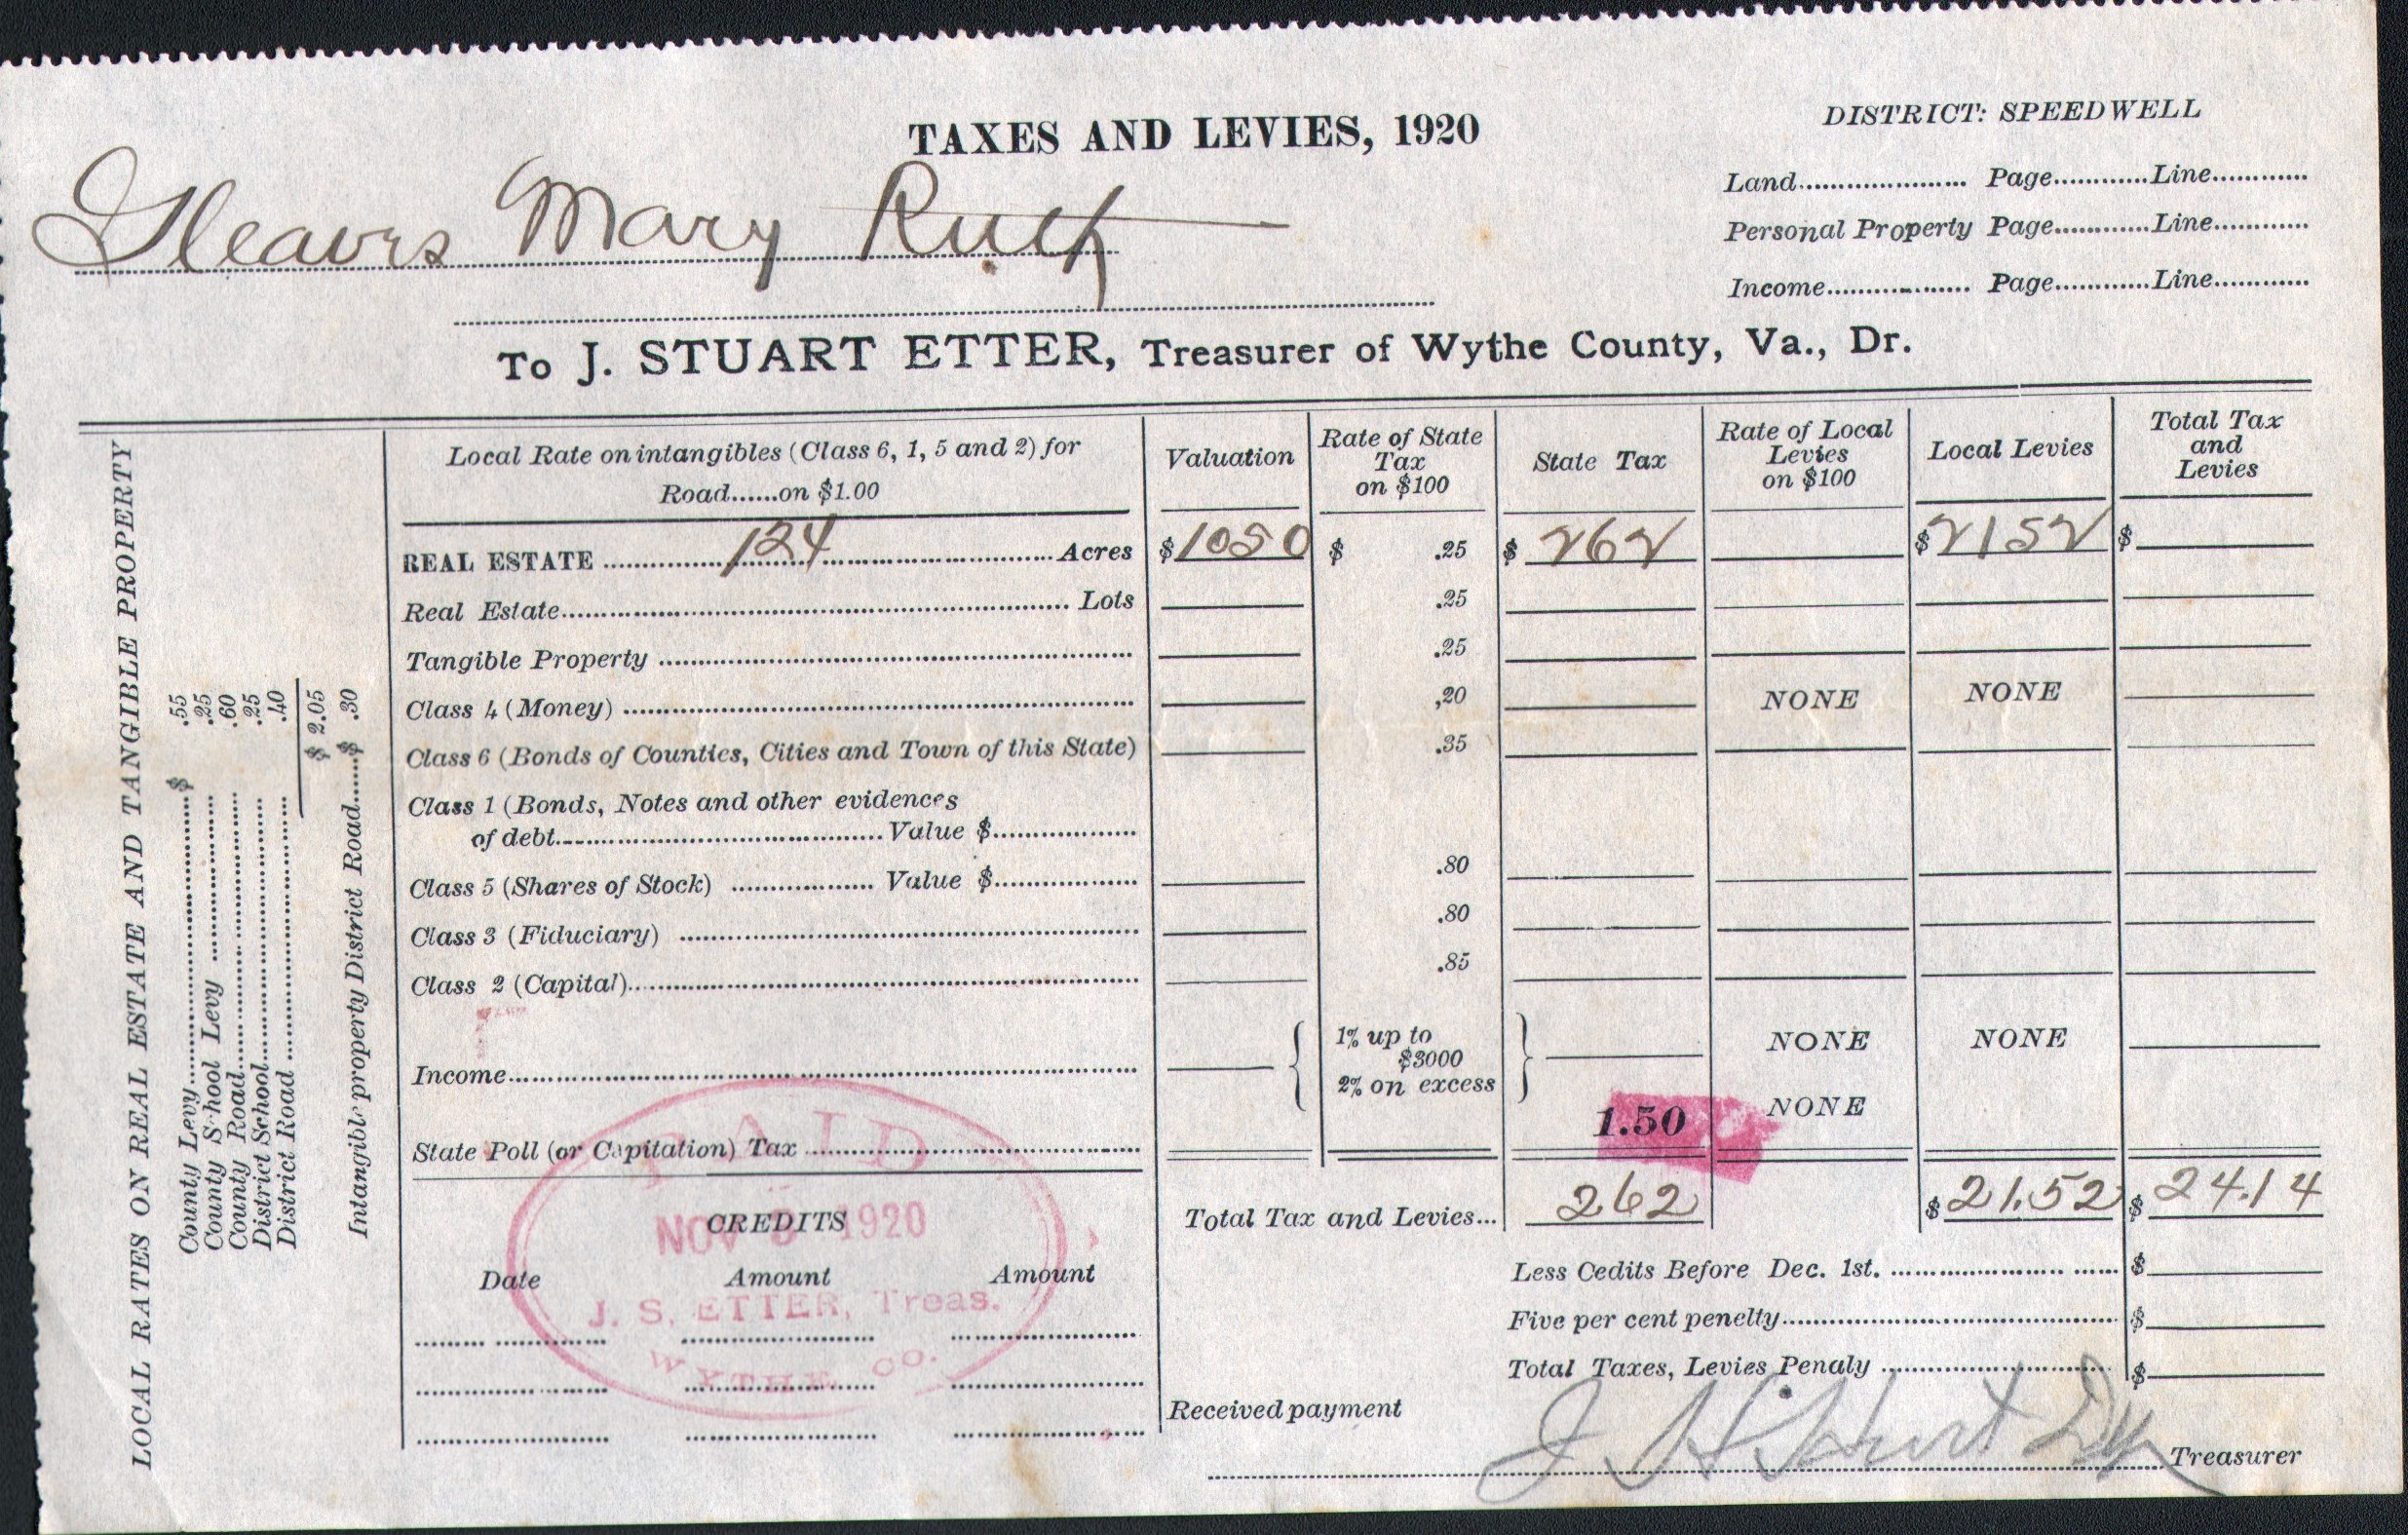 TAXES AND LEVIES, 1920
DISTRICT: SPEEDWELL
Gleaves Mary Ruth
Land.................... Page............Line............
Personal Property Page............Line............
Income................. Page............Line............
To J. STUART ETTER, Treasurer of Wythe County, Va., Dr.
LOCAL RATES ON REAL ESTATE AND TANGIBLE PROPERTY
County Levy............$ .55
County S hool Levy ............ .25
County Road............ .60
District School............ .25
District Road ............ .40
$ 2.05
Intangible property District Road.......$ .30
Local Rate on intangibles (Class 6, 1, 5 and 2) for
Road......on $1.00
Valuation
Rate of State Tax on $100
State Tax
Rate of Local Levies on $100
Local Levies
Total Tax and Levies
REAL ESTATE ............124............ Acres $1050 $ .25 $ 262 $2152 $
Real Estate............ Lots .25
Tangible Property ............ .25
Class 4 (Money) ............ ,20 NONE NONE
Class 6 (Bonds of Counties, Cities and Town of this State) .35
Class 1 (Bonds, Notes and other evidences
of debt............ Value $............
.80
Class 5 (Shares of Stock) ............ Value $............
.80
Class 3 (Fiduciary) ............
.85
Class 2 (Capital)............
Income............ 1% up to $3000 2% on excess NONE NONE
State Poll (or Capitation) Tax ............ 1.50 NONE
Total Tax and Levies... 262 $21.52 $24.14
PAID
NOV 1920
J. S. ETTER, Treas.
WYTHE CO.
CREDITS
Date Amount Amount
Less Cedits Before Dec. 1st. ............ $
Five per cent penelty............ $
Total Taxes, Levies Penaly ............ $
Received payment
Treasurer